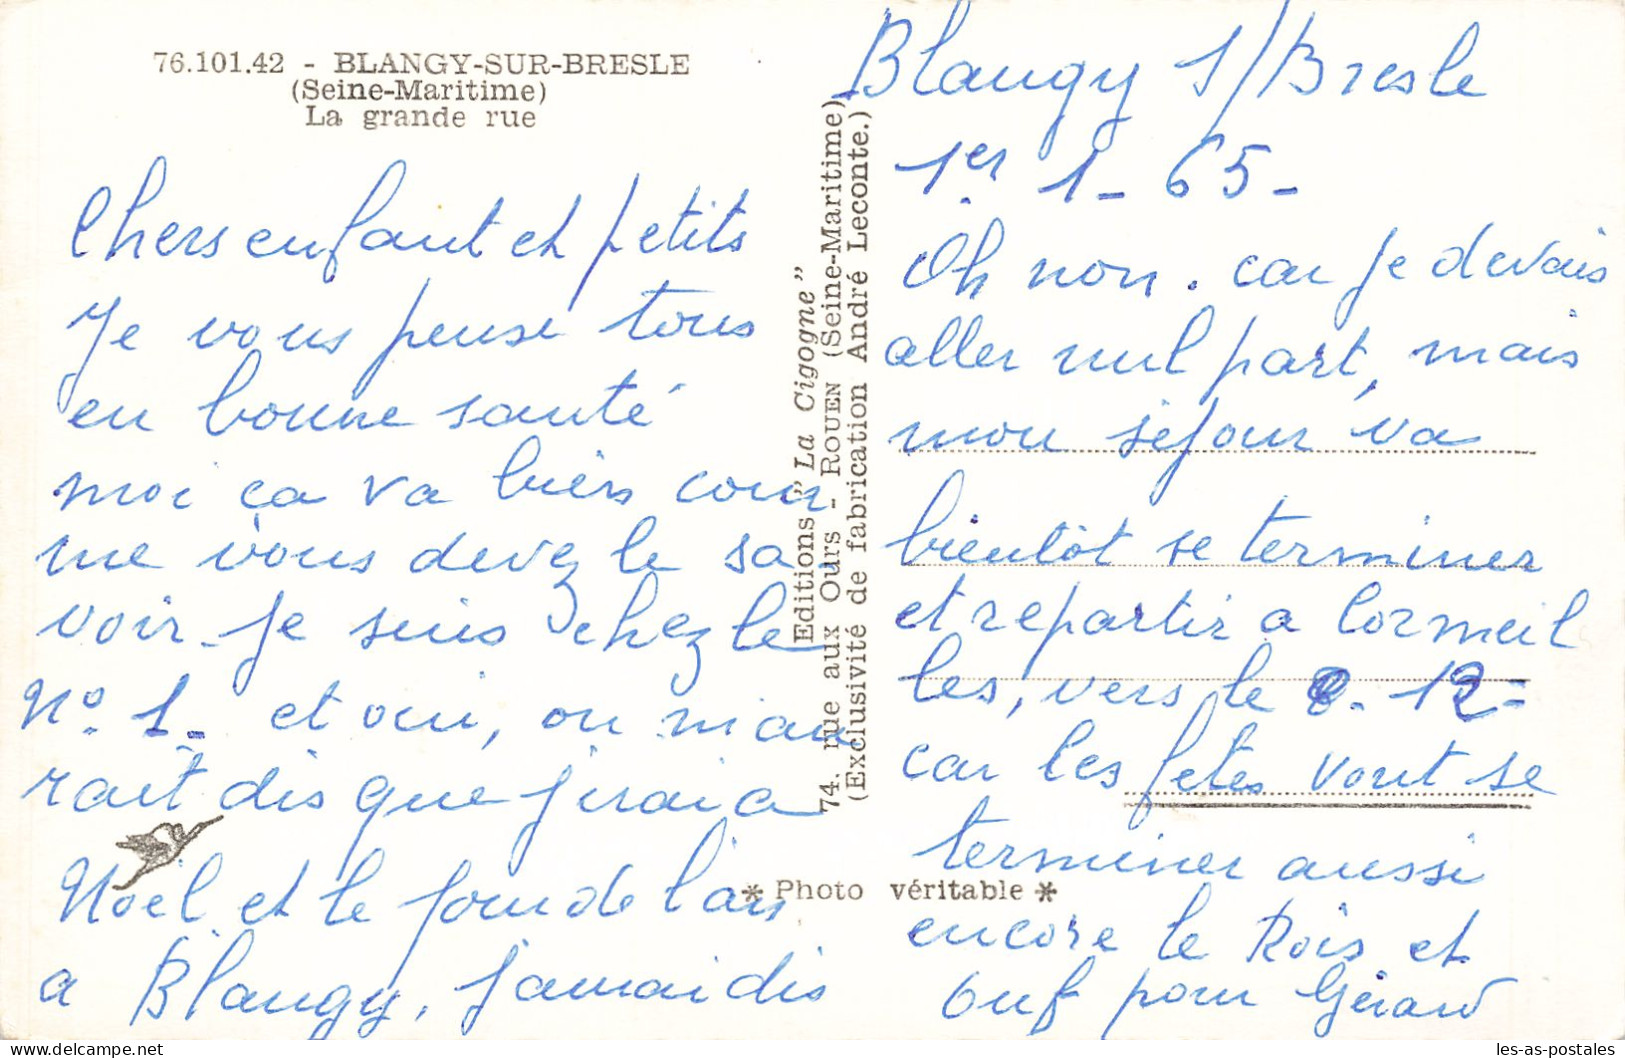 76.101.42 - BLANGY-SUR-BRESLE
(Seine-Maritime)
La grande rue
Chers enfant et petits
Je vous pense tous
en bonne santé
moi ça va bien com
me vous devez le sa
voir. Je suis chez le
N° 1. et oui, on m'au
rait dis que j'irai a
Noël et le jour de l'an
a Blangy, j'aurai dis
Editions "La Cigogne"
74. rue aux Ours - ROUEN (Seine-Maritime)
(Exclusivité de fabrication André Leconte.)
* Photo véritable *
Blangy S/Bresle
1er 1 - 65 -
Oh non. car je devais
aller nul part, mais
mon séjour va
bientôt se terminer
et repartir a Cormeil
les, vers le 12 =
car les fêtes vont se
terminer aussi
encore le Rois et
ouf pour Gérard
les-as-postales